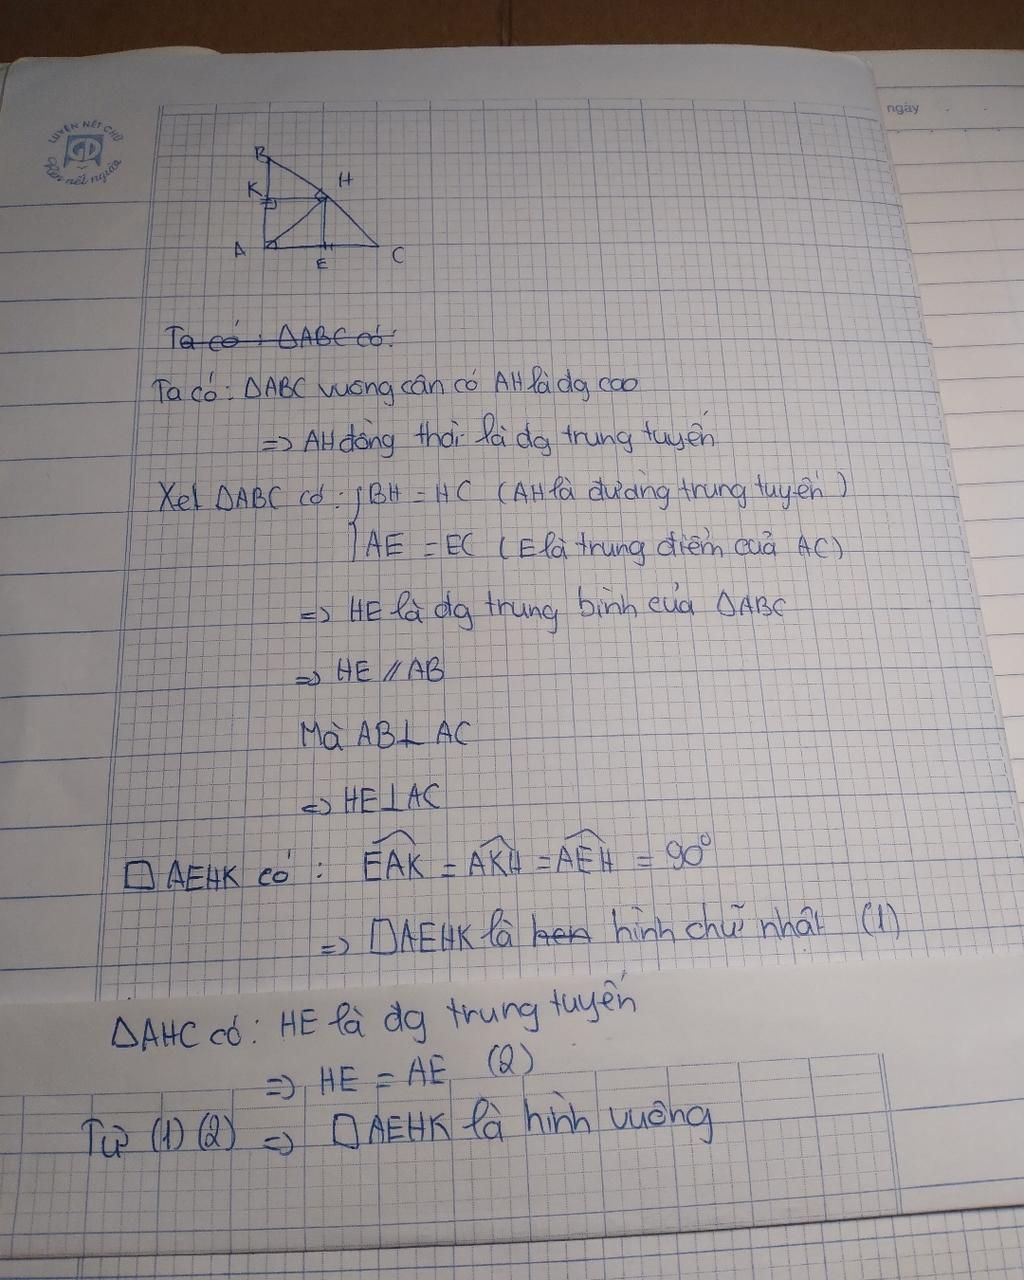 LUYỆN NÉT CHỮ
Rèn nết người
ngày
B
K
H
A
E
C
Ta có : ΔABC có:
Ta có : ΔABC vuông cân có AH là đg cao
=> AH đồng thời là đg trung tuyến
Xét ΔABC có : { BH = HC (AH là đường trung tuyến)
AE = EC (E là trung điểm của AC)
=> HE là đg trung bình của ΔABC
=> HE // AB
Mà AB ⊥ AC
=> HE ⊥ AC
□ AEHK có : EAK = AKH = AEH = 90°
=> □AEHK là hcn hình chữ nhật (1)
ΔAHC có: HE là đg trung tuyến
=> HE = AE (2)
Từ (1) (2) => □AEHK là hình vuông